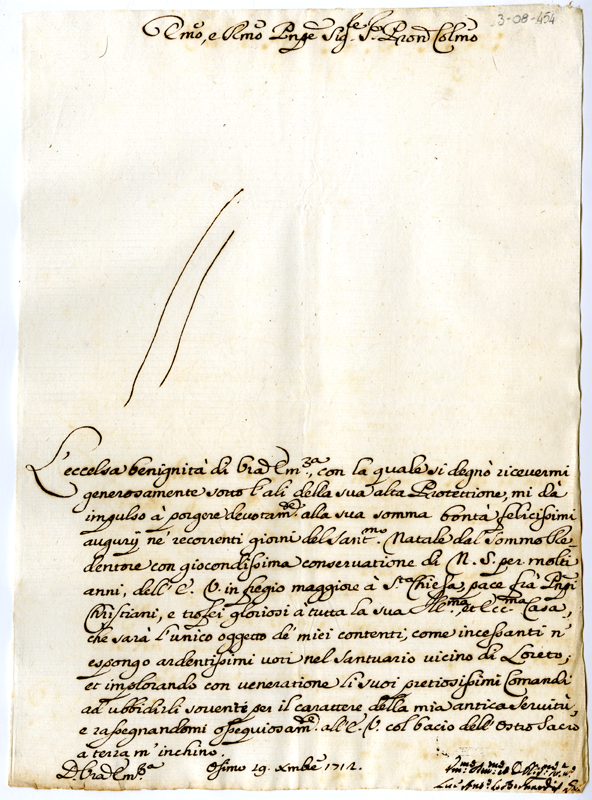 3-08-454
Emo, e Rmo Pnpe Sigre, Sre Pron Colmo
L'eccelsa benignità di Vra Emza, con la quale si degnò ricevermi
generosamente sotto l'ali della sua alta Protettione, mi dà
impulso à porgere devotamde alla sua somma bontà felicissimi
augurij ne' recorrenti giorni del Santmo Natale dal Sommo Re-
dentore con giocondissima conservatione di N. S. per molti
anni, dell'E. V. in fregio maggiore à Sta Chiesa, pace frà Pnpi
Christiani, e trofei gloriosi à tutta la sua Illma, et Eccma Casa,
che sarà l'unico oggetto de' miei contenti, come incessanti n'
espongo ardentissimi voti nel santuario vicino di Loreto;
et implorando con veneratione li suoi pretiosissimi Comandi
ad ubbidirli sovente per il carattere della mia antica servitù,
e rassegnandomi ossequiosamde all'E. V. col bacio dell'Ostro Sacro
a terra m'inchino.
D Vra Emza Osimo 19. Xmbre 1712.